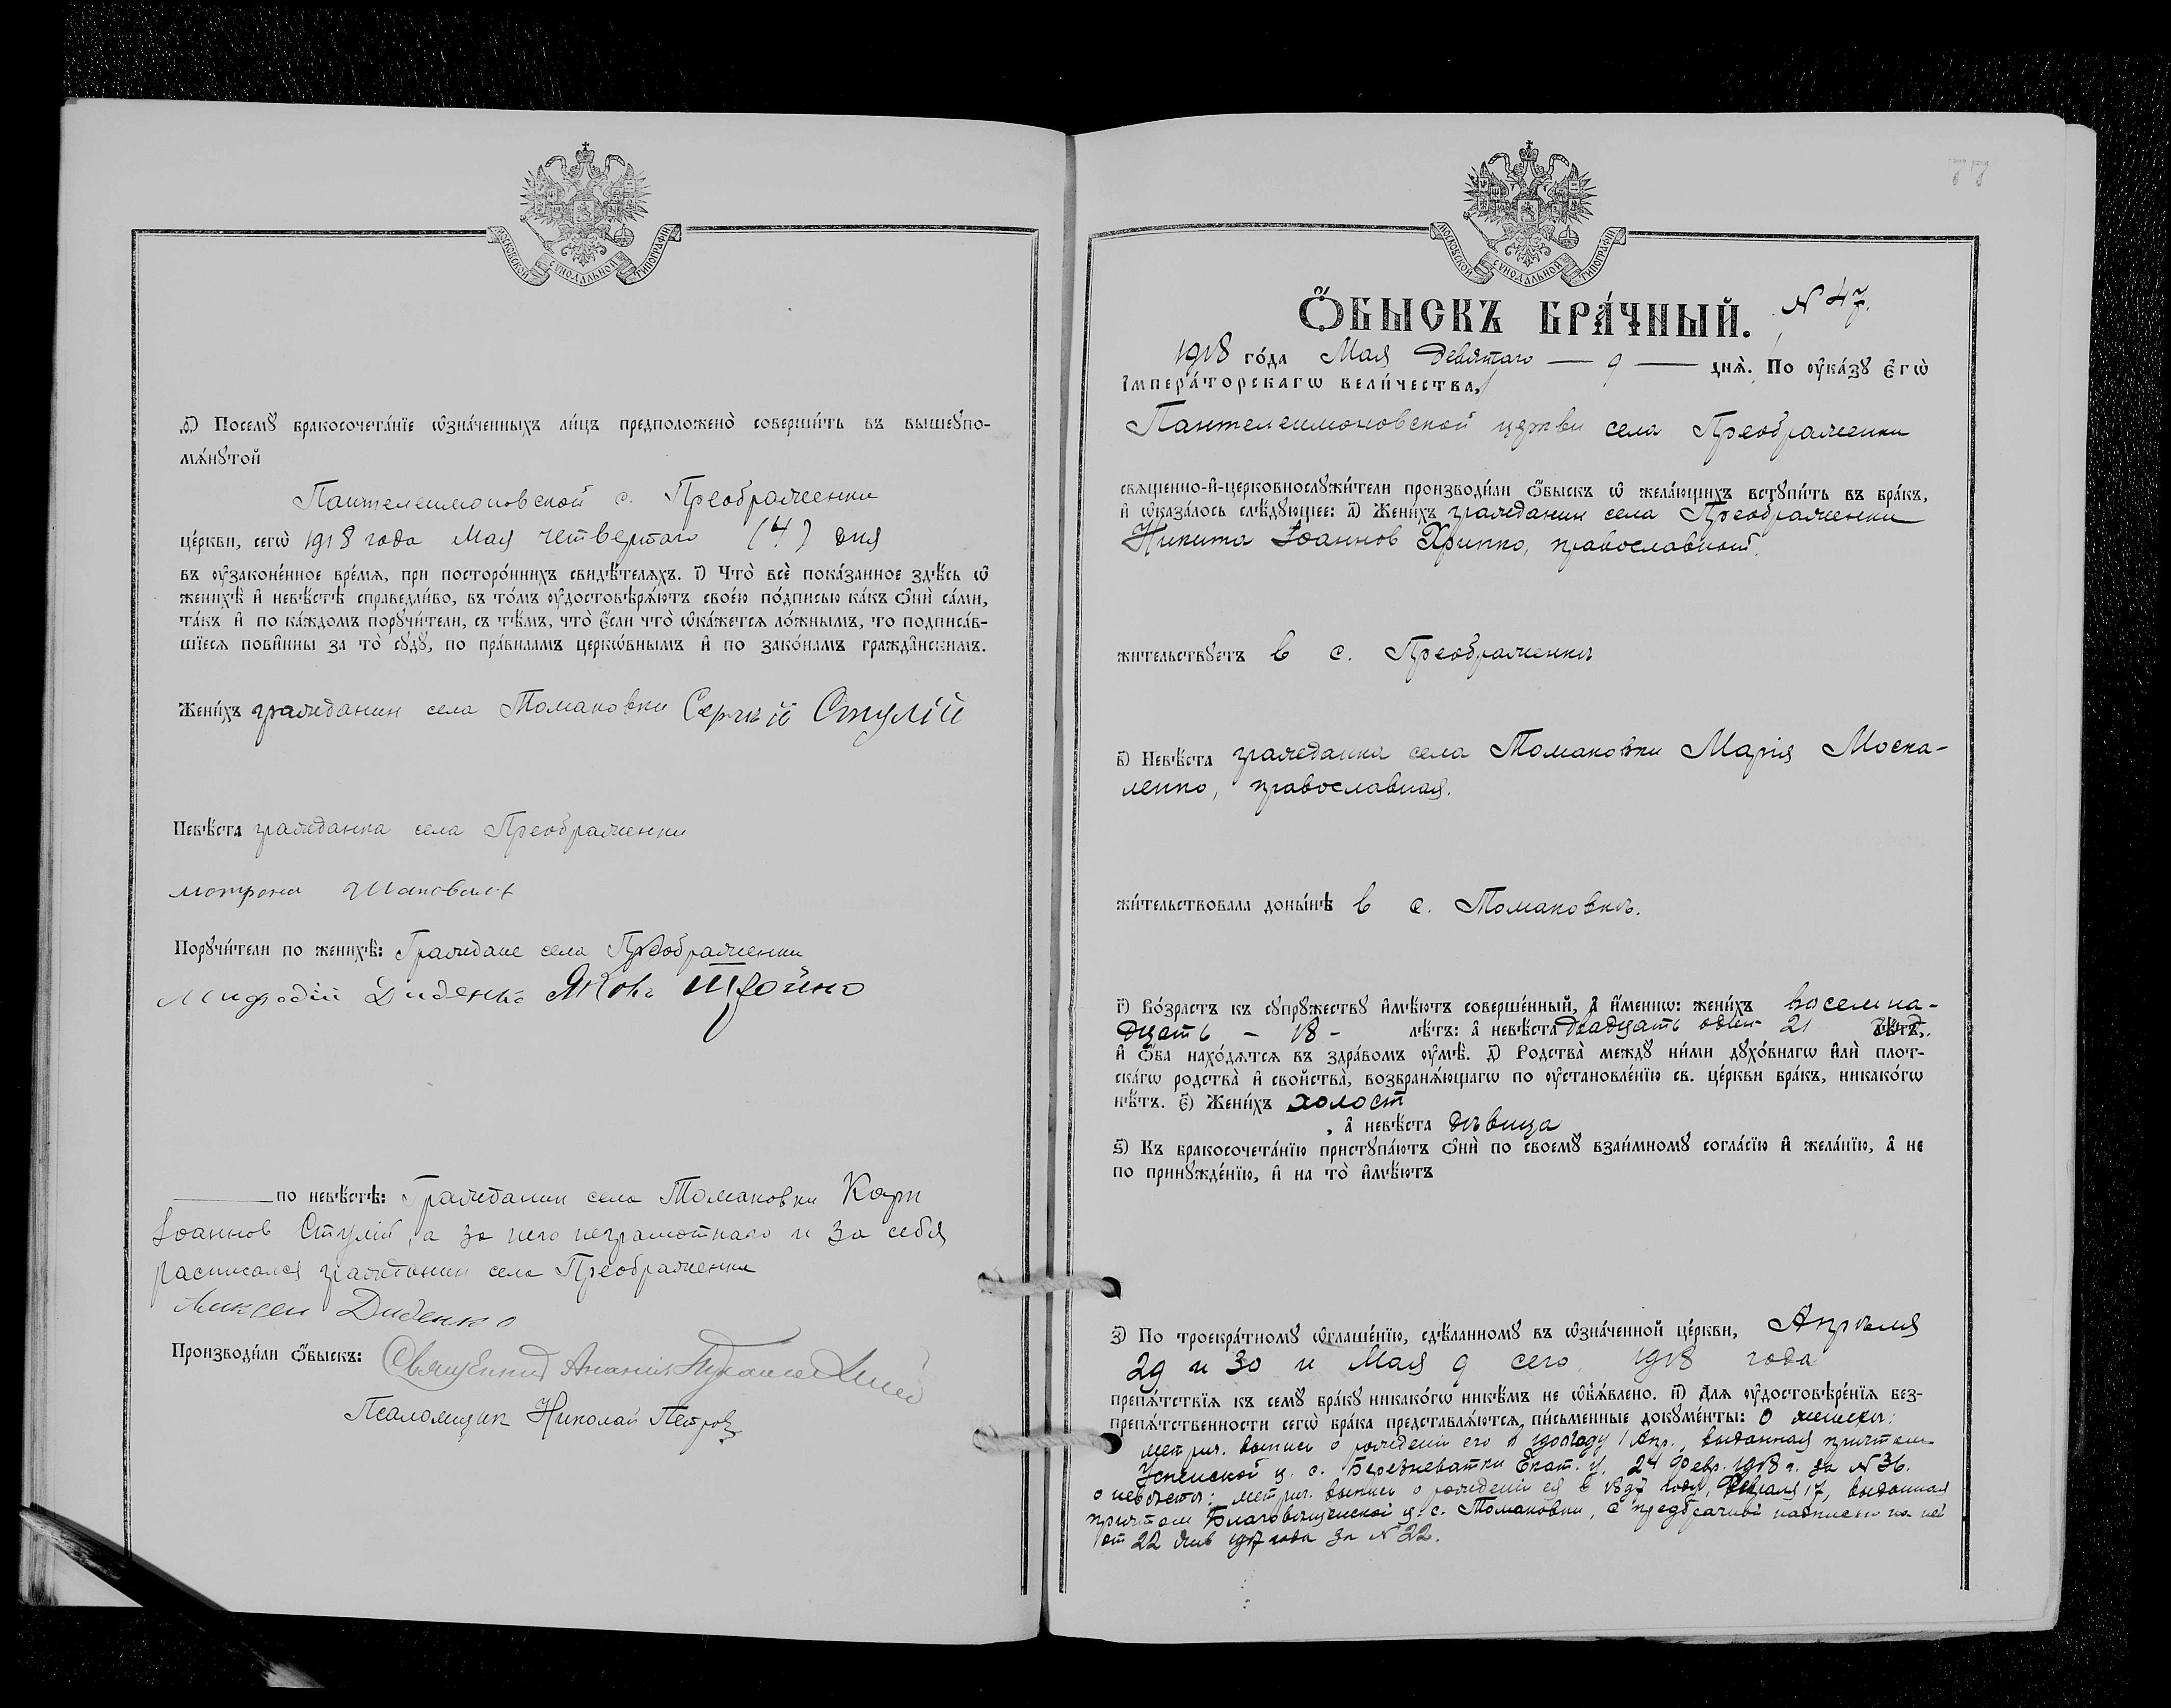 МОСКОВСКОЙ СѴНОДАЛЬНОЙ ТИПОГРАФІИ
ѳ҃) Посемꙋ бракосочета́нїе ѡзна́ченныхъ ли́цъ предположено̀ соверши́ть въ вышеꙋпо-
мѧ́нꙋтой
Пантелеимоновской с. Преображенки
це́ркви, сегѡ̀ 1918 года Мая четвертаго (4) дня
въ оу҆законе́нное вре́мѧ, при посторо́ннихъ свидѣ́телѧхъ. і҃) Что̀ всѐ пока́занное здѣ́сь ѡ҆
женихѣ̀ и҆ невѣ́стѣ справедли́во, въ то́мъ оу҆достовѣрѧ́ютъ свое́ю по́дписью ка́къ ѻ҆нѝ са́ми,
та́къ и҆ по ка́ждомъ порꙋчи́тели, съ тѣ́мъ, что̀ є҆́сли что̀ ѡ҆ка́жетсѧ ло́жнымъ, то подписа́в-
шїесѧ пови́нны за то̀ сꙋдꙋ̀, по пра́виламъ церко́внымъ и҆ по зако́намъ гражда́нскимъ.
Жени́хъ гражданин села Томаковки Сергѣй Стулій
Невѣ́ста гражданка села Преображенки
мотрона Шаповал
Порꙋчи́тели по женихѣ̀: Граждане села Преображенки
Мифодій Диденко Яков
по невѣ́стѣ: Гражданин села Томаковки Карп
Іоаннов Стулій, а за него неграмотнаго и за себя
расписался гражданин села Преображенки
Алексей Диденко
Производи́ли ѻ҆́быскъ: Священник Ананія
Псаломщик Николай Петров
МОСКОВСКОЙ СѴНОДАЛЬНОЙ ТИПОГРАФІИ
Ѻ҆́БЫСКЪ БРА́ЧНЫЙ. N 47.
1918 го́да Мая девятаго — 9 — днѧ̀. По оу҆ка́зꙋ є҆гѡ̀
І҆мпера́торскагѡ вели́чества,
Пантелеимоновской церкви села Преображенки
свѧщенно-и҆-церковнослꙋжи́тели производи́ли ѻ҆́быскъ ѡ҆ жела́ющихъ встꙋпи́ть въ бра́къ,
и҆ ѡ҆каза́лось слѣ́дꙋющее: а҃) Жени́хъ гражданин села Преображенки
Никита Іоаннов Хрипко, православный.
жительствꙋетъ в с. Преображенкѣ
в҃) Невѣ́ста гражданка села Томаковки Марія Моска-
ленко, православная.
жи́тельствовала доны́нѣ в с. Томаковкѣ.
г҃) Во́зрастъ къ сꙋпрꙋжествꙋ и҆мѣ́ютъ соверше́нный, а҆ и҆́меннѡ: жени́хъ восемна-
дцать — 18 — лѣ́тъ: а҆ невѣ́ста двадцать один 21 год.
и҆ ѻ҆́ба нахо́дѧтсѧ въ здра́вомъ оу҆мѣ̀. д҃) Родства̀ междꙋ ни́ми дꙋхо́внагѡ и҆лѝ плот-
ска́гѡ родства̀ и҆ свойства̀, возбранѧ́ющагѡ по оу҆становле́нїю св. це́ркви бра́къ, никако́гѡ
нѣ́тъ. є҃) Жени́хъ холост
, а҆ невѣ́ста дѣвица
ѕ҃) Къ бракосочета́нїю пристꙋпа́ютъ ѻ҆нѝ по своемꙋ̀ взаи́мномꙋ согла́сїю и҆ жела́нїю, а҆ не
по принꙋжде́нїю, и҆ на то̀ и҆мѣ́ютъ
з҃) По троекра́тномꙋ ѡ҆глаше́нїю, сдѣ́ланномꙋ въ ѡ҆зна́ченной це́ркви, Апрѣля
29 и 30 и Мая 9 сего 1918 года
препѧ́тствїѧ къ семꙋ̀ бра́кꙋ никако́гѡ никѣ́мъ не ѡ҆б̾ѧ́влено. и҃) Длѧ оу҆достовѣре́нїѧ без-
препѧ́тственности сегѡ̀ бра́ка представлѧ́ютсѧ пи́сьменные докꙋме́нты: о женихѣ:
метрич. выпись о рожденіи его в 1900 году 1 Апр., выданная причтом
Успенской ц. с. Березневатки Екат. у. 24 февр. 1918 г. за N 36.
о невѣстѣ: метрич. выпись о рожденіи ея в 1897 году, Февраля 17, выданная
причтом Благовѣщенской ц. с. Томаковки, с предбрачной надписью на ней
от 22 Янв 1917 года за N 22.